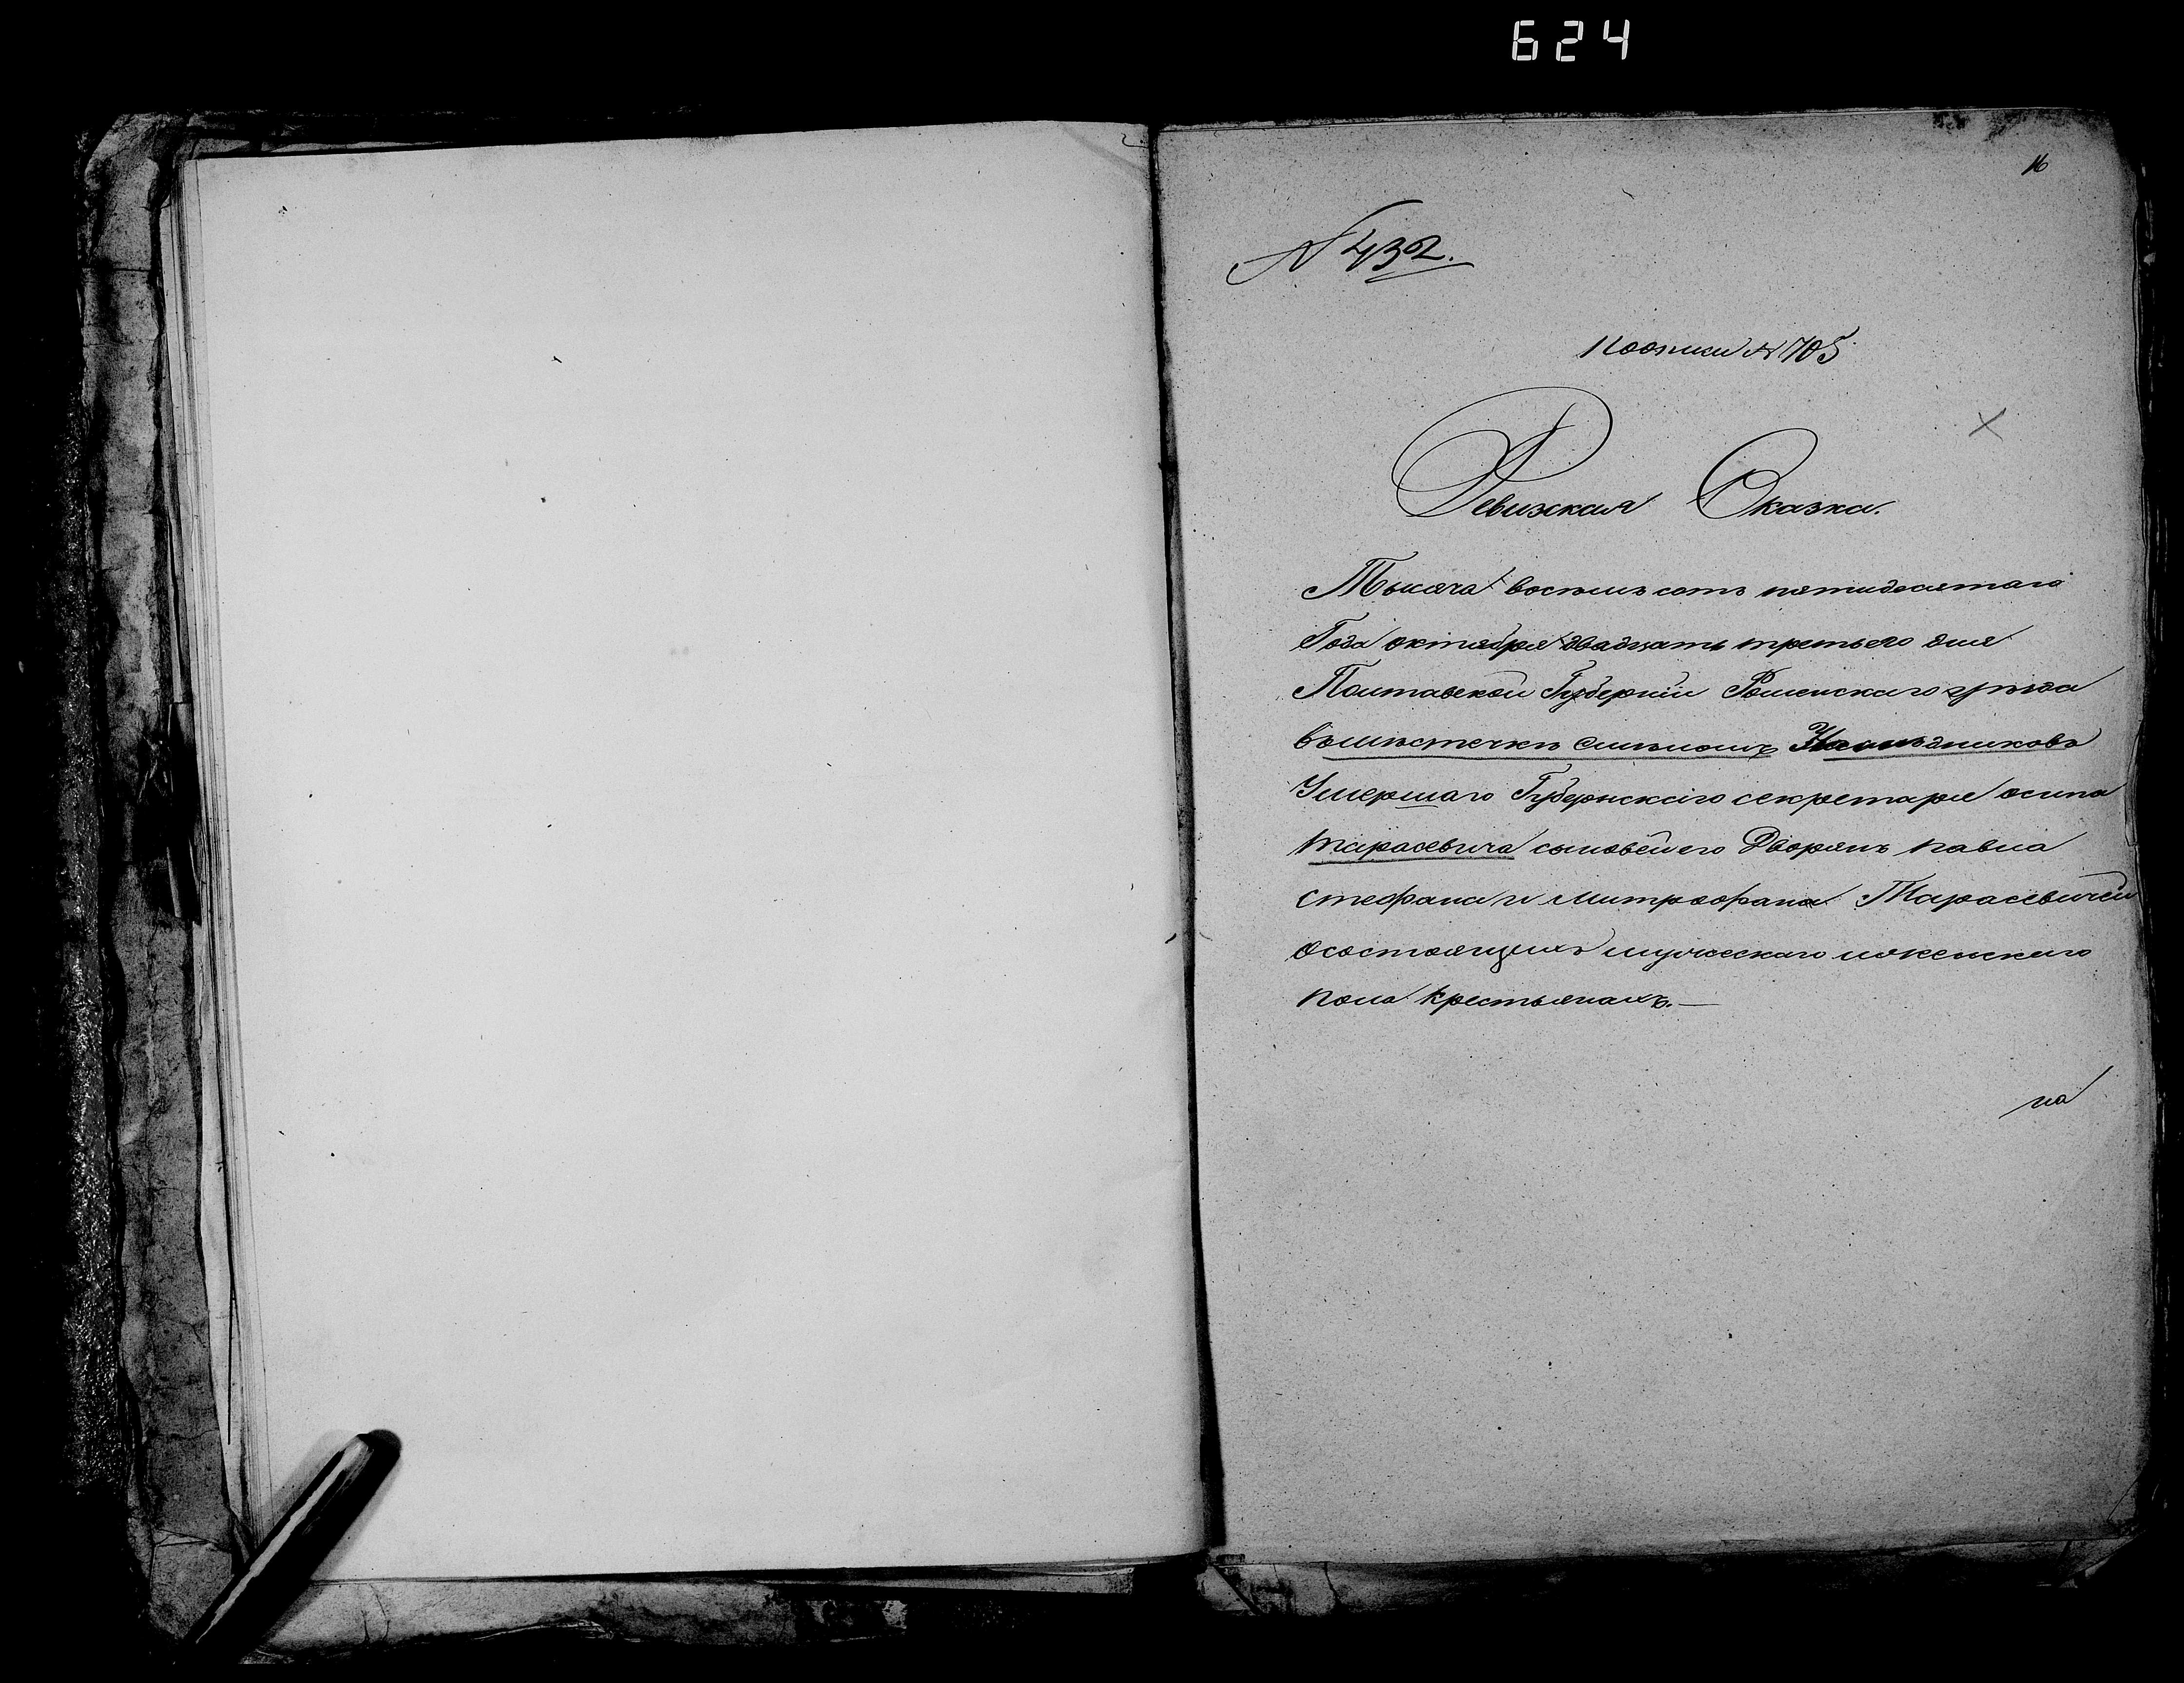 624
16
N 432.
поописи N 705
Ревизская Сказка.
Тысяча восемь сотъ пятидесятаго
Года октября двадцать третьего дня
Полтавской Губерніи Роменскаго уѣзда
вмѣстечкѣ Смѣломъ Наслѣдниковъ
Умершаго Губернскаго секретаря осипа
тарасевича сыновей его Дворянъ павла
стефана и митрофана Тарасевичей
осостоящихъ мужескаго иженскаго
пола крестьянахъ.—
на